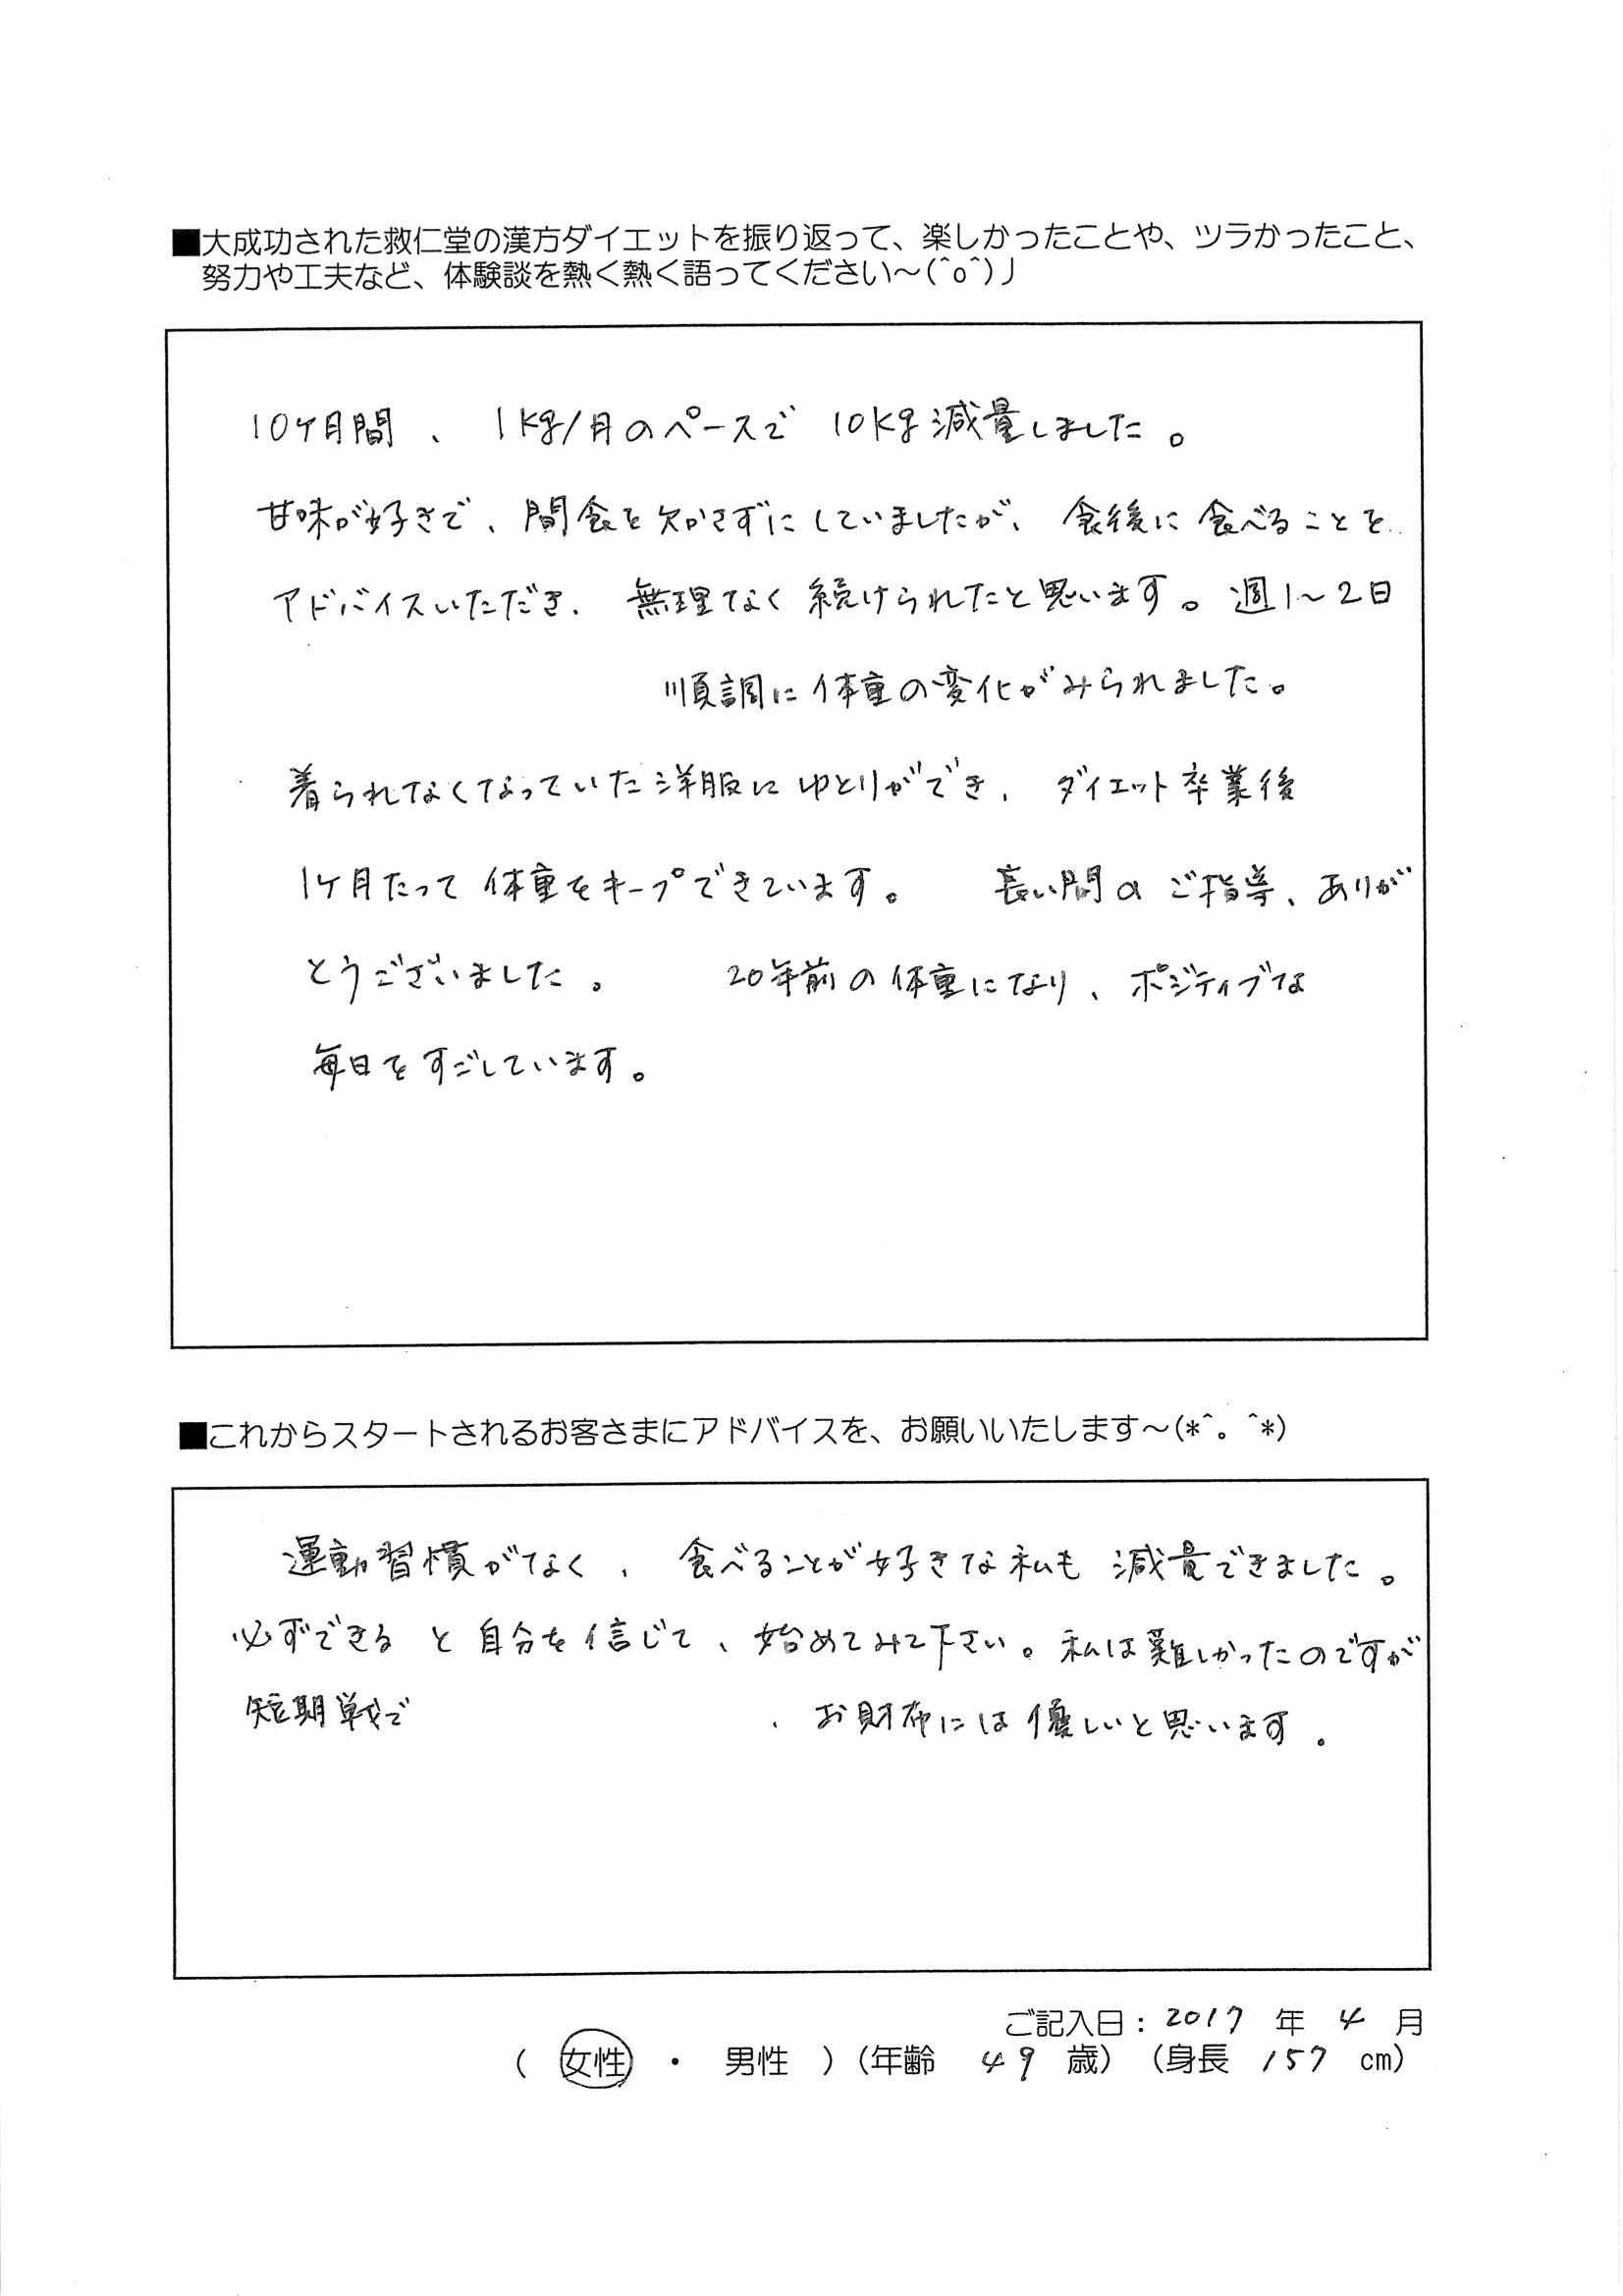 ■大成功された救仁堂の漢方ダイエットを振り返って、楽しかったことや、ツラかったこと、
努力や工夫など、体験談を熱く熱く語ってください～(^o^)丿
10ケ月間、1kg/月のペースで 10kg減量しました。
甘味が好きで、間食を欠かさずにしていましたが、食後に食べることを
アドバイスいただき、無理なく続けられたと思います。週1～2日
順調に体重の変化がみられました。
着られなくなっていた洋服にゆとりができ、ダイエット卒業後
1ケ月たって体重をキープできています。 長い間のご指導、ありが
とうございました。 20年前の体重になり、ポジティブな
毎日をすごしています。
■これからスタートされるお客さまにアドバイスを、お願いいたします～(*^。^*)
運動習慣がなく、食べることが好きな私も減量できました。
必ずできると自分を信じて、始めてみて下さい。私は難しかったのですが
短期戦で 、お財布には優しいと思います。
ご記入日：2017 年 4 月
( 女性 ・ 男性 ) (年齢 49 歳) (身長 157 cm)